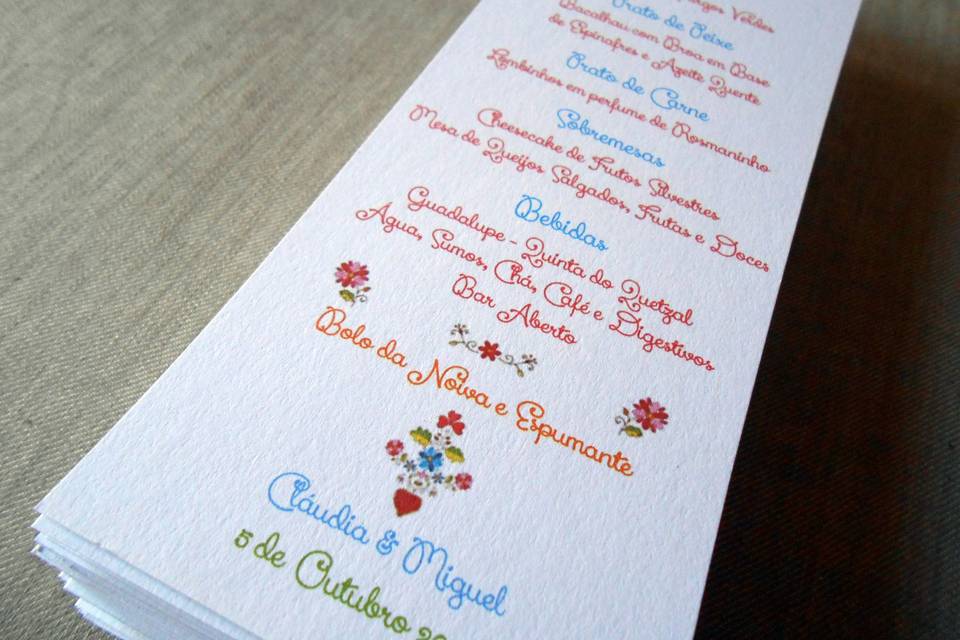 Verdes
Prato de Peixe
Bacalhau com Broa em Base
de Espinafres e Azeite Quente
Prato de Carne
Lombinhos em perfume de Rosmaninho
Sobremesas
Cheesecake de Frutos Silvestres
Mesa de Queijos Salgados, Frutas e Doces
Bebidas
Guadalupe - Quinta do Quetzal
Agua, Sumos, Chá, Café e Digestivos
Bar Aberto
Bolo da Noiva e Espumante
Cláudia & Miguel
5 de Outubro